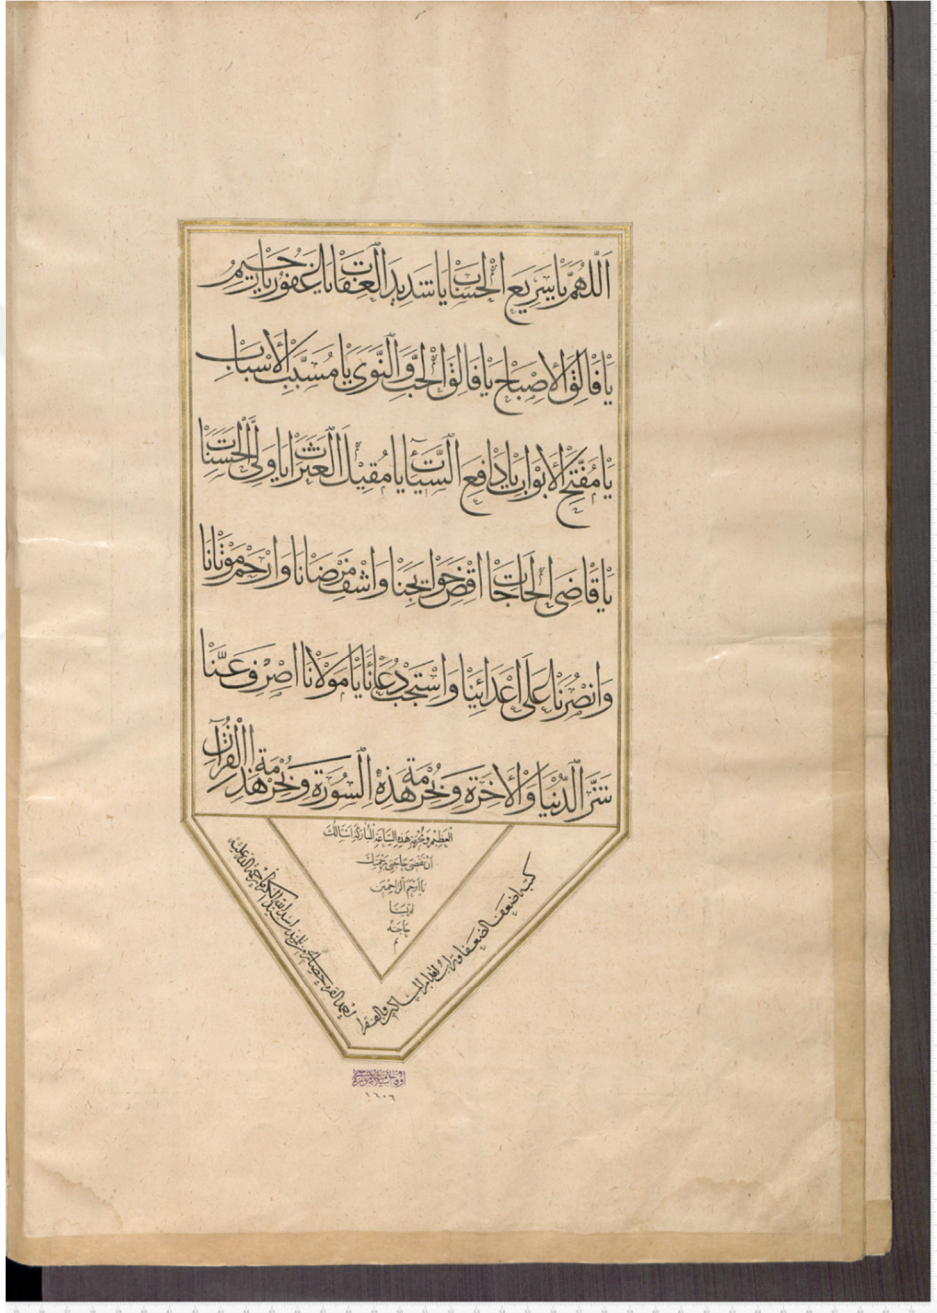 اَللّٰهُمَّ يَا سَرِيعَ الْحِسَابِ يَا شَدِيدَ الْعِقَابِ يَا غَفُورُ يَا رَحِيمُ
يَا فَالِقَ الْاِصْبَاحِ يَا فَالِقَ الْحَبِّ وَالنَّوَى يَا مُسَبِّبَ الْاَسْبَابِ
يَا مُفَتِّحَ الْاَبْوَابِ يَا دَافِعَ السَّيِّئَاتِ يَا مُقِيلَ الْعَثَرَاتِ يَا وَلِيَّ الْحَسَنَاتِ
يَا قَاضِىَ الْحَاجَاتِ اقْضِ حَوَايِجَنَا وَاشْفِ مَرْضَانَا وَارْحَمْ مَوْتَانَا
وَانْصُرْنَا عَلَى اَعْدَائِنَا وَاسْتَجِبْ دُعَائَنَا يَا مَوْلَانَا اصْرِفْ عَنَّا
شَرَّ الدُّنْيَا وَالْاٰخِرَةِ وَبِحُرْمَةِ هٰذِهِ السُّورَةِ وَبِحُرْمَةِ هٰذَا الْقُرْاٰنِ
العظيم وبحرمة هذه الساعة المباركة اسالك
ان تقضى حاجتى برحمتك
يا ارحم الراحمين
كتبه اضعف الضعفا وتراب اقدام المساكين والفقرا
١٦٠٦